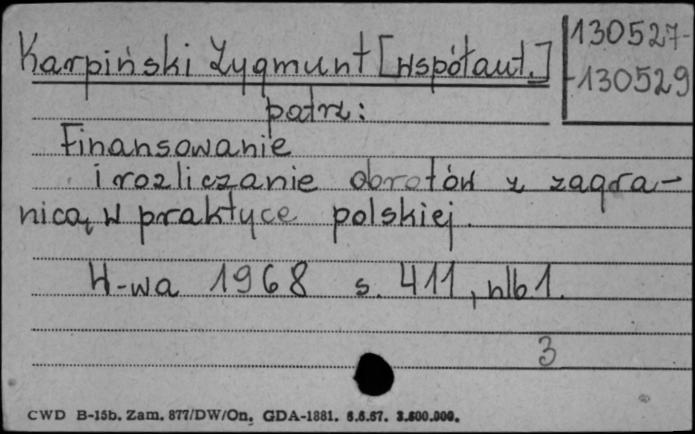 Karpiński Zygmunt [współaut.]
130527-
-130529
patrz:
Finansowanie
i rozliczanie obrotów z zagra-
nicą w praktyce polskiej.
W-wa 1968 s. 411, nlb 1.
3
CWD B-15b. Zam. 877/DW/On, GDA-1881. 6.6.67. 3.600.000.